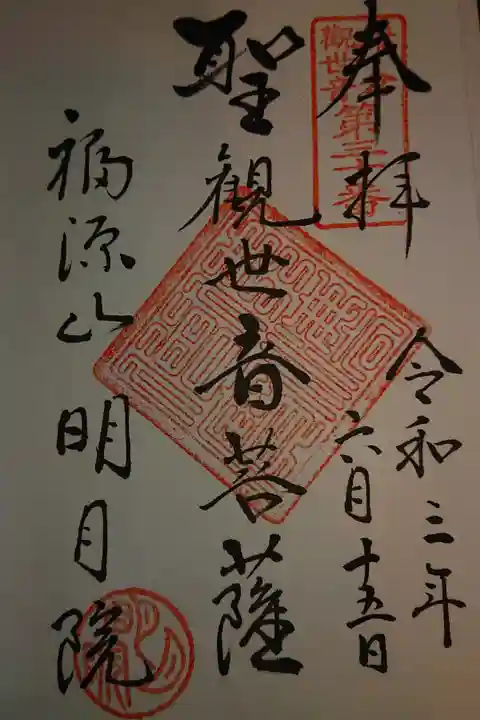 奉拝
令和三年
六月十五日
聖観世音菩薩
福源山明月院
観世音第三十番